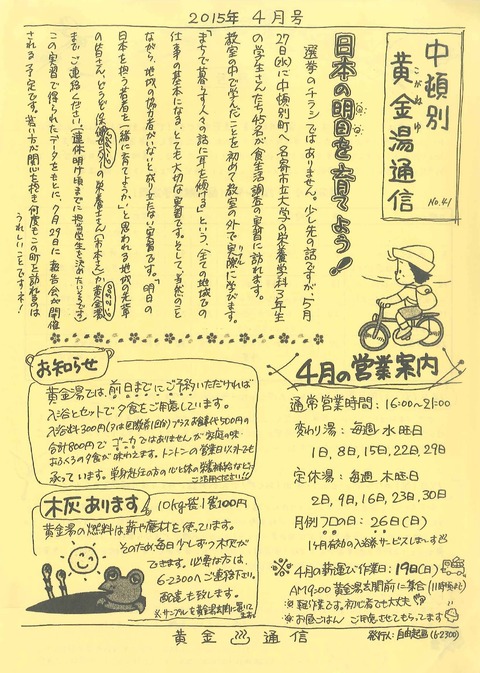 2015年 4月号
中頓別
黄金湯通信
こがねゆ
No.41
日本の明日を育てよう!
選挙のチラシではありません。少し先の話ですが、5月
27日(水)に中頓別町へ名寄市立大学の栄養学科3年生
の学生さんたち45名が食生活調査の実習に訪れます。
教室の中で学んだことを初めて教室の外で実際に学びます。
「まちで暮らす人々の話に耳を傾ける」という、全ての地域での
仕事の基本になる、とても大切な実習です。そして、当然のこと
ながら、地域の協力者がいないと成り立たない実習です。「明日の
日本を担う若者を一緒に育てようか」と思われる地域の先輩
の皆さん、どうぞ
の栄養士さん
か黄金湯
までご連絡ください。(連休明け頃までに担当学生を決めたいそうです)
この実習で得られたデータをもとに、9月29日に報告会が開催
される予定です。若い方が関心を抱き何度もこの町を訪れるのは
うれしいことですネ!
お知らせ
黄金湯では、前日までにご予約いただければ
入浴とセットで夕食をご用意しています。
入浴料300円(又は回数券1回分)プラスお食事代500円の
合計800円で ゴーカではありませんが家庭の味・
おふくろの夕食が味わえます。トントンの営業日以外でも
承っています。単身赴任の方の心と体の栄養補給などに
ご活用ください!!
木灰あります 10kg 1袋100円
黄金湯の燃料は薪や廃材を使っています。
そのため毎日少しずつ木灰が
できます。必要な方は、
6-2300へご連絡下さい。
配達も致します。
※サンプルを黄金湯玄関に置いてます。
4月の営業案内
通常営業時間:16:00~21:00
変わり湯:毎週 水曜日
1日、8日、15日、22日、29日
定休湯:毎週 木曜日
2日、9日、16日、23日、30日
月例フロの日:26日(日)
1ヶ月有効の入浴券サービスしま~す
※4月の薪運び作業日:19日(日)
AM9:00 黄金湯玄関前に集合(11時頃まで)
※軽作業です。初心者でも大丈夫
※お昼ごはん ご用意させてもらってます
黄金 通信
発行人:自由起 (6-2300)